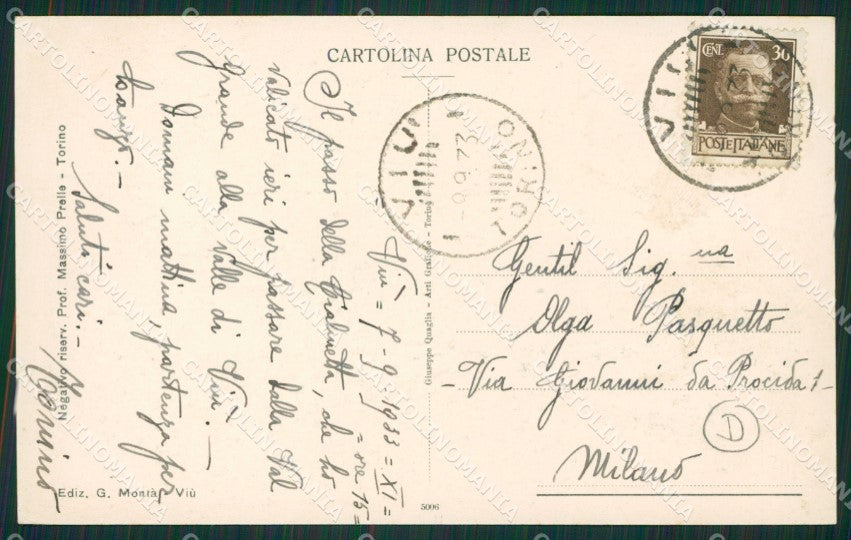 CARTOLINA POSTALE
CENT. 30
POSTE ITALIANE
VIÙ
TORINO
Viù = 7-9-1933 = XI =
= ore 15 =
Il passo della Cialmetta, che ho
valicato ieri per passare dalla Val
grande alla Valle di Viù. -
Domani mattina, partenza per
Saluti cari. -
Gentil Sig.na
Olga Pasquetto
- Via Giovanni da Procida 1 -
Milano
D
Negativo riserv. Prof. Massimo Prelle - Torino
Ediz. G. Montà - Viù
Giuseppe Quaglia - Arti Grafiche - Torino
5006
CARTOLINOMANIA